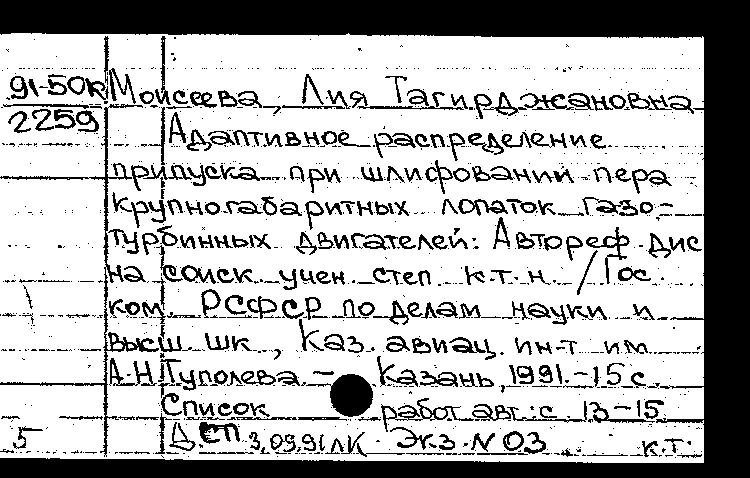 91-50к Моисеева, Лия Тагирджановна
2259 Адаптивное распределение
припуска при шлифовании пера
крупногабаритных лопаток газо-
турбинных двигателей: Автореф. дис
на соиск. учен. степ к.т.н. / Гос.
ком. РСФСР по делам науки и
высш. шк., Каз. авиац. ин-т им
А.Н.Туполева. - Казань, 1991.-15 с.
Список работ авт.: с. 13-15
5 ДСП 3.09.91 ЛК. Экз. N 03 к.т.